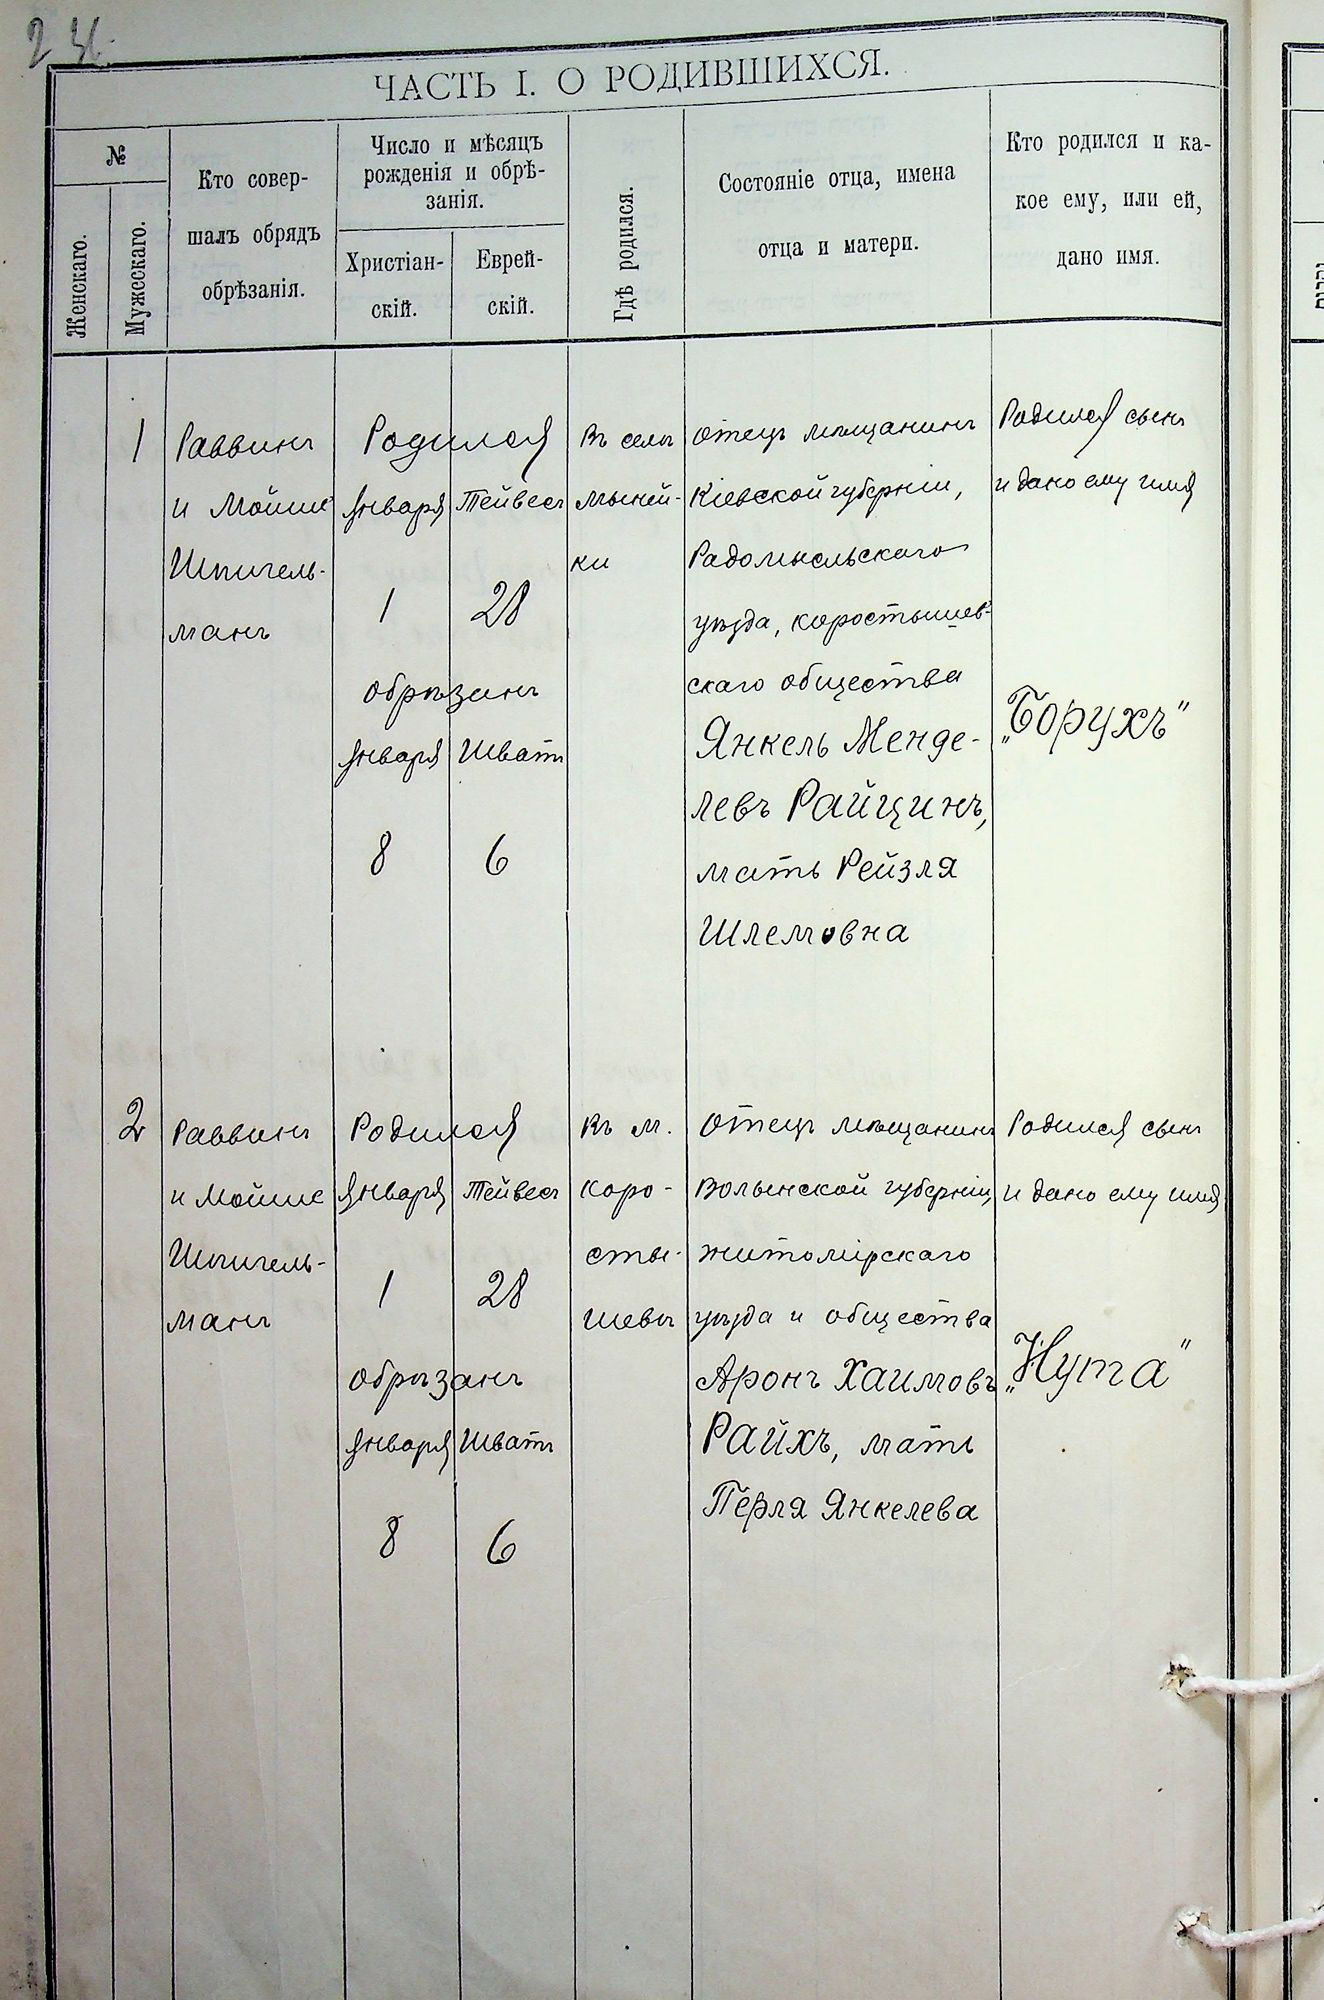 2
ЧАСТЬ I. О РОДИВШИХСЯ.
№
Женскаго.
Мужескаго.
Кто совер-
шалъ обрядъ
обрѣзанія.
Число и мѣсяцъ
рожденія и обрѣ-
занія.
Христіан-
скій.
Еврей-
скій.
Гдѣ родился.
Состояніе отца, имена
отца и матери.
Кто родился и ка-
кое ему, или ей,
дано имя.
1
Раввинъ
и Мойше
Шпигель-
манъ
Родился
Января
Тейвесъ
1
28
обрѣзанъ
Января
Шватъ
8
6
Въ селѣ
ки
отецъ мѣщанинъ
Кіевской губерніи,
Радомысльскаго
уѣзда, коростышев-
скаго общества
Янкель Менде-
левъ Райцинъ,
мать Рейзля
Шлемовна
Родился сынъ
и дано ему имя
„Борухъ"
2
Раввинъ
и Мойше
Шпигель-
манъ
Родился
Января
Тейвесъ
1
28
обрѣзанъ
Января
Шватъ
8
6
Въ м.
Коро-
сты-
шевѣ
Отецъ мѣщанинъ
Волынской губерніи,
житомірскаго
уѣзда и общества
Аронъ Хаимовъ
Райхъ, мать
Перля Янкелева
Родился сынъ
и дано ему имя
„Нута"